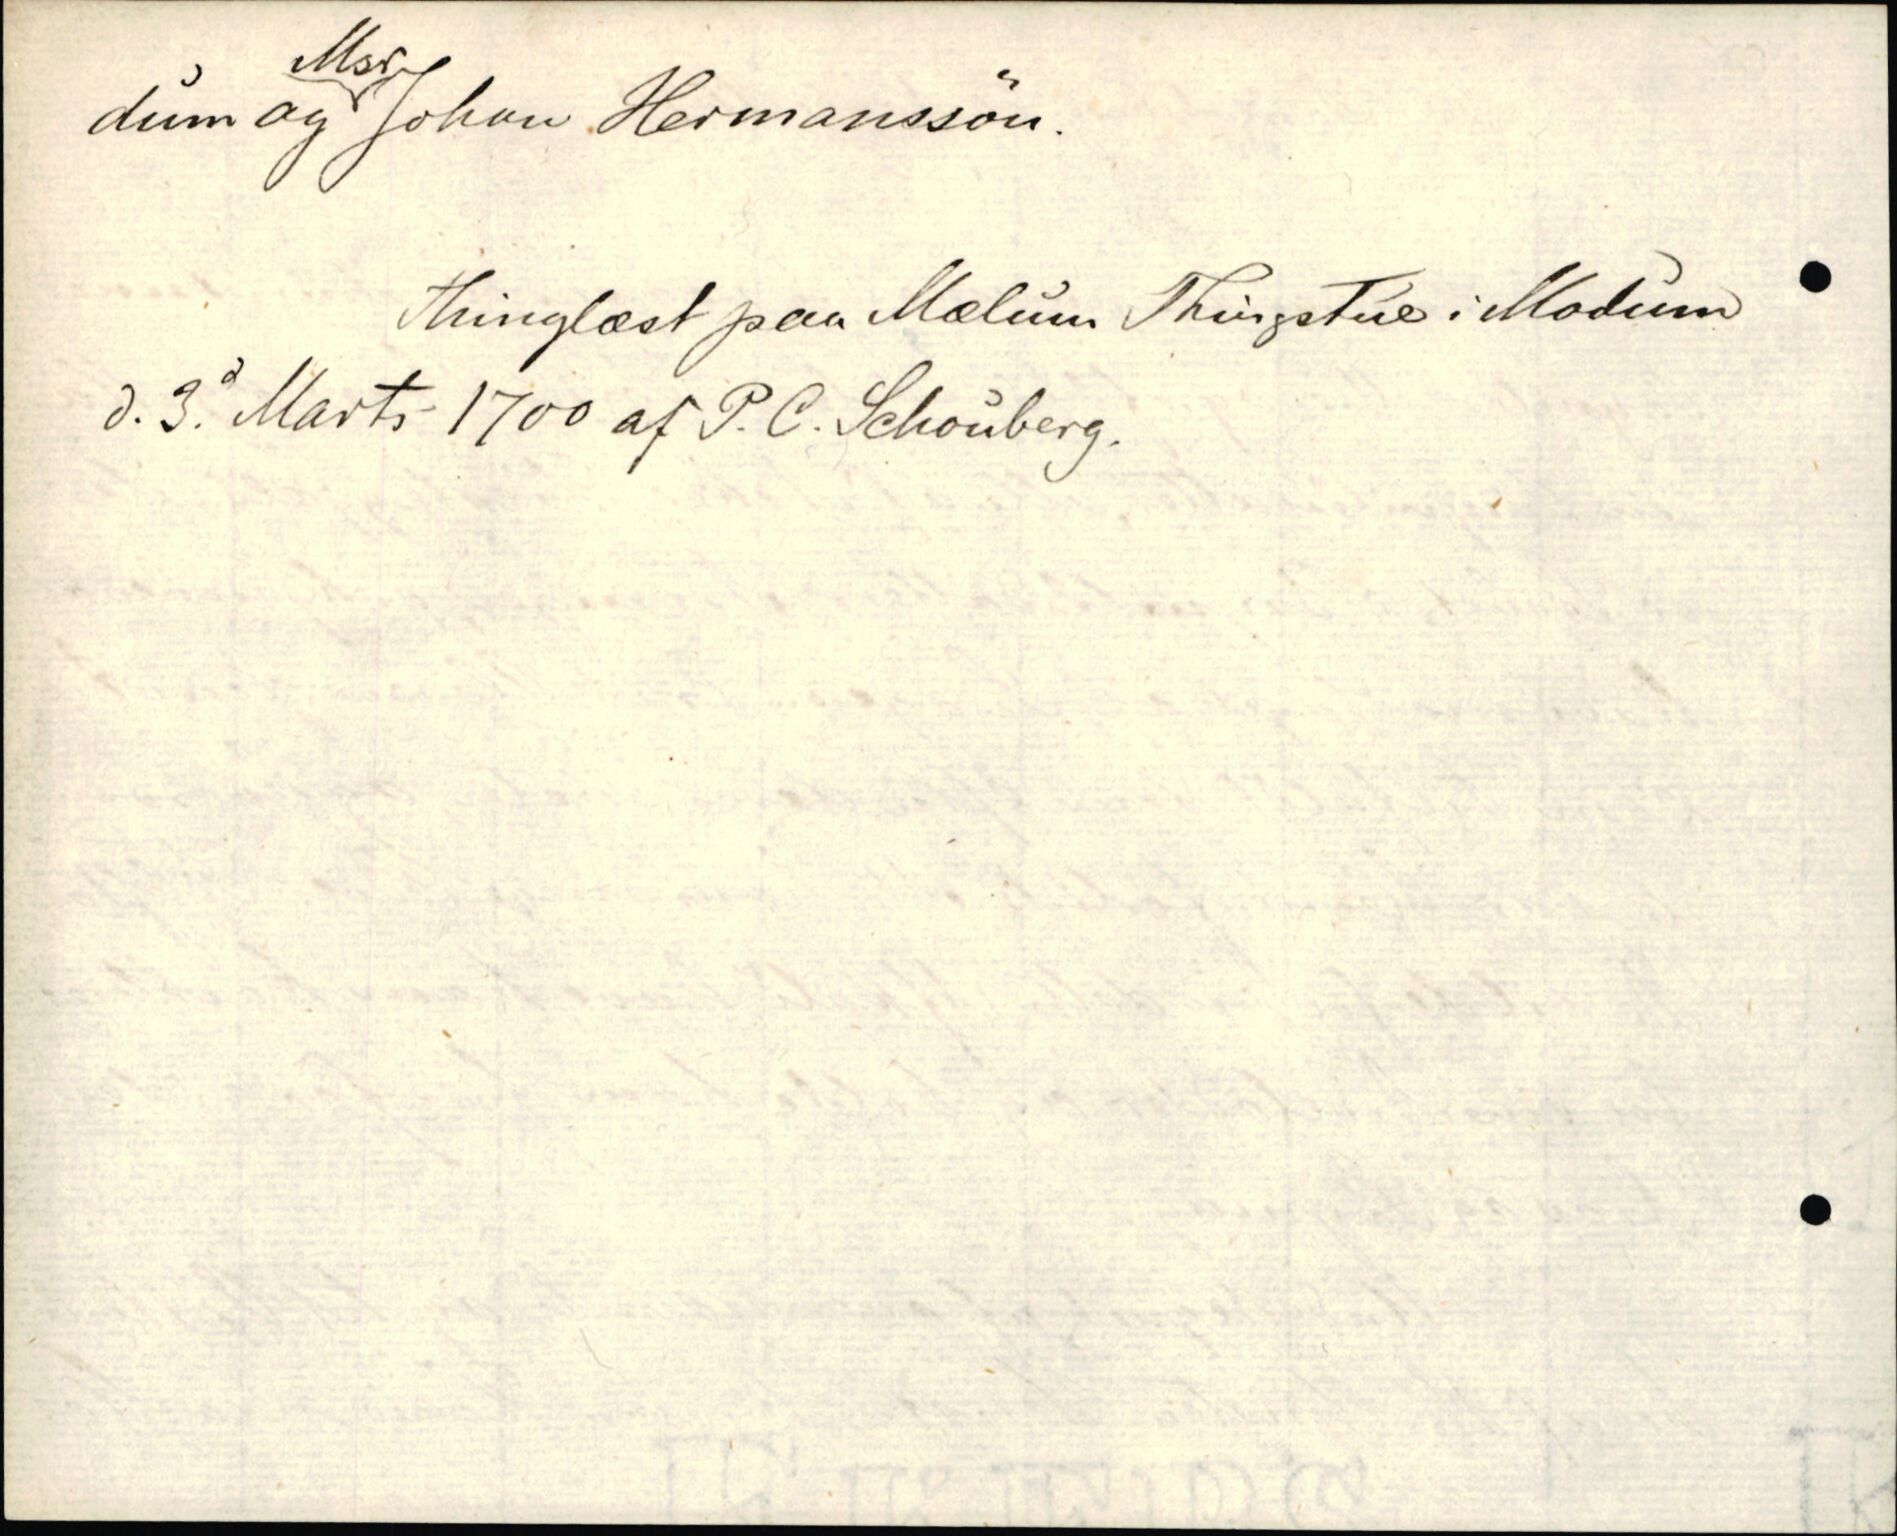 dum og Msr Johan Hermanssön.
thinglæst paa Mælum Thingstue i Modum
d. 3.d Marts 1700 af P. C. Schouberg.